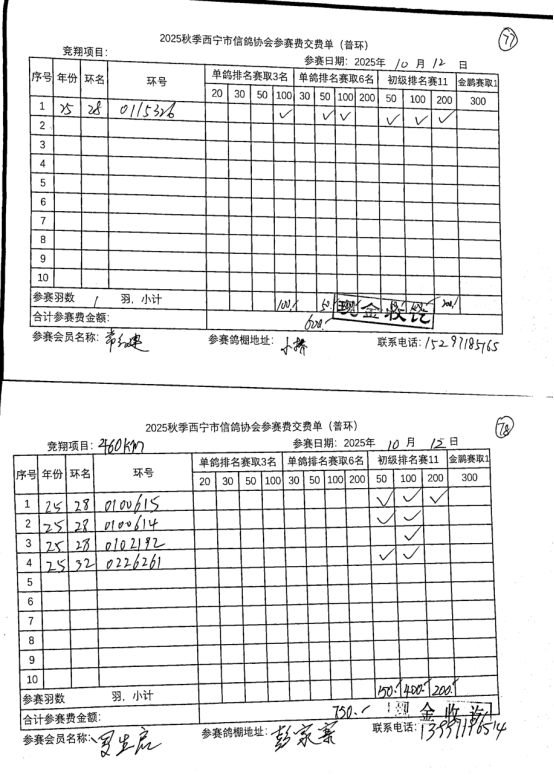 2025秋季西宁市信鸽协会参赛费交费单（普环） 77
竞翔项目： 参赛日期：2025年 10 月 12 日
序号 年份 环名 环号 单鸽排名赛取3名 单鸽排名赛取6名 初级排名赛11 金鹏赛取1
20 30 50 100 30 50 100 200 50 100 200 300
1 25 28 0115326 ✓ ✓ ✓ ✓ ✓ ✓
2
3
4
5
6
7
8
9
10
参赛羽数 1 羽，小计 100 50 200
合计参赛费金额： 600 现金收讫
参赛会员名称： 参赛鸽棚地址：小桥 联系电话：15297185765
2025秋季西宁市信鸽协会参赛费交费单（普环） 78
竞翔项目：460KM 参赛日期：2025年 10 月 12 日
序号 年份 环名 环号 单鸽排名赛取3名 单鸽排名赛取6名 初级排名赛11 金鹏赛取1
20 30 50 100 30 50 100 200 50 100 200 300
1 25 28 0100615 ✓ ✓ ✓
2 25 28 0100614 ✓ ✓
3 25 28 0102192 ✓
4 25 32 0226261 ✓ ✓
5
6
7
8
9
10
参赛羽数 羽，小计 150 400 200
合计参赛费金额： 750 现金收讫
参赛会员名称： 参赛鸽棚地址：彭家寨 联系电话：